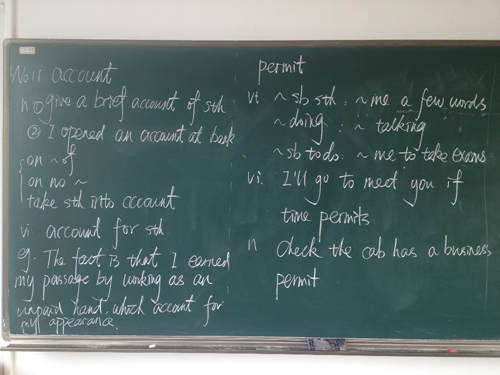 No.11 account
n ① give a brief account of sth
② I opened an account at bank
on ~ of
on no ~
take sth into account
vi account for sth.
eg. The fact is that I earned
my passage by working as an
unpaid hand, which account for
my appearance.
permit
vt ~ sb sth : ~ me a few words
~ doing : ~ talking
~ sb to do : ~ me to take exams
vi. I'll go to meet you if
time permits
n check the cab has a business
permit